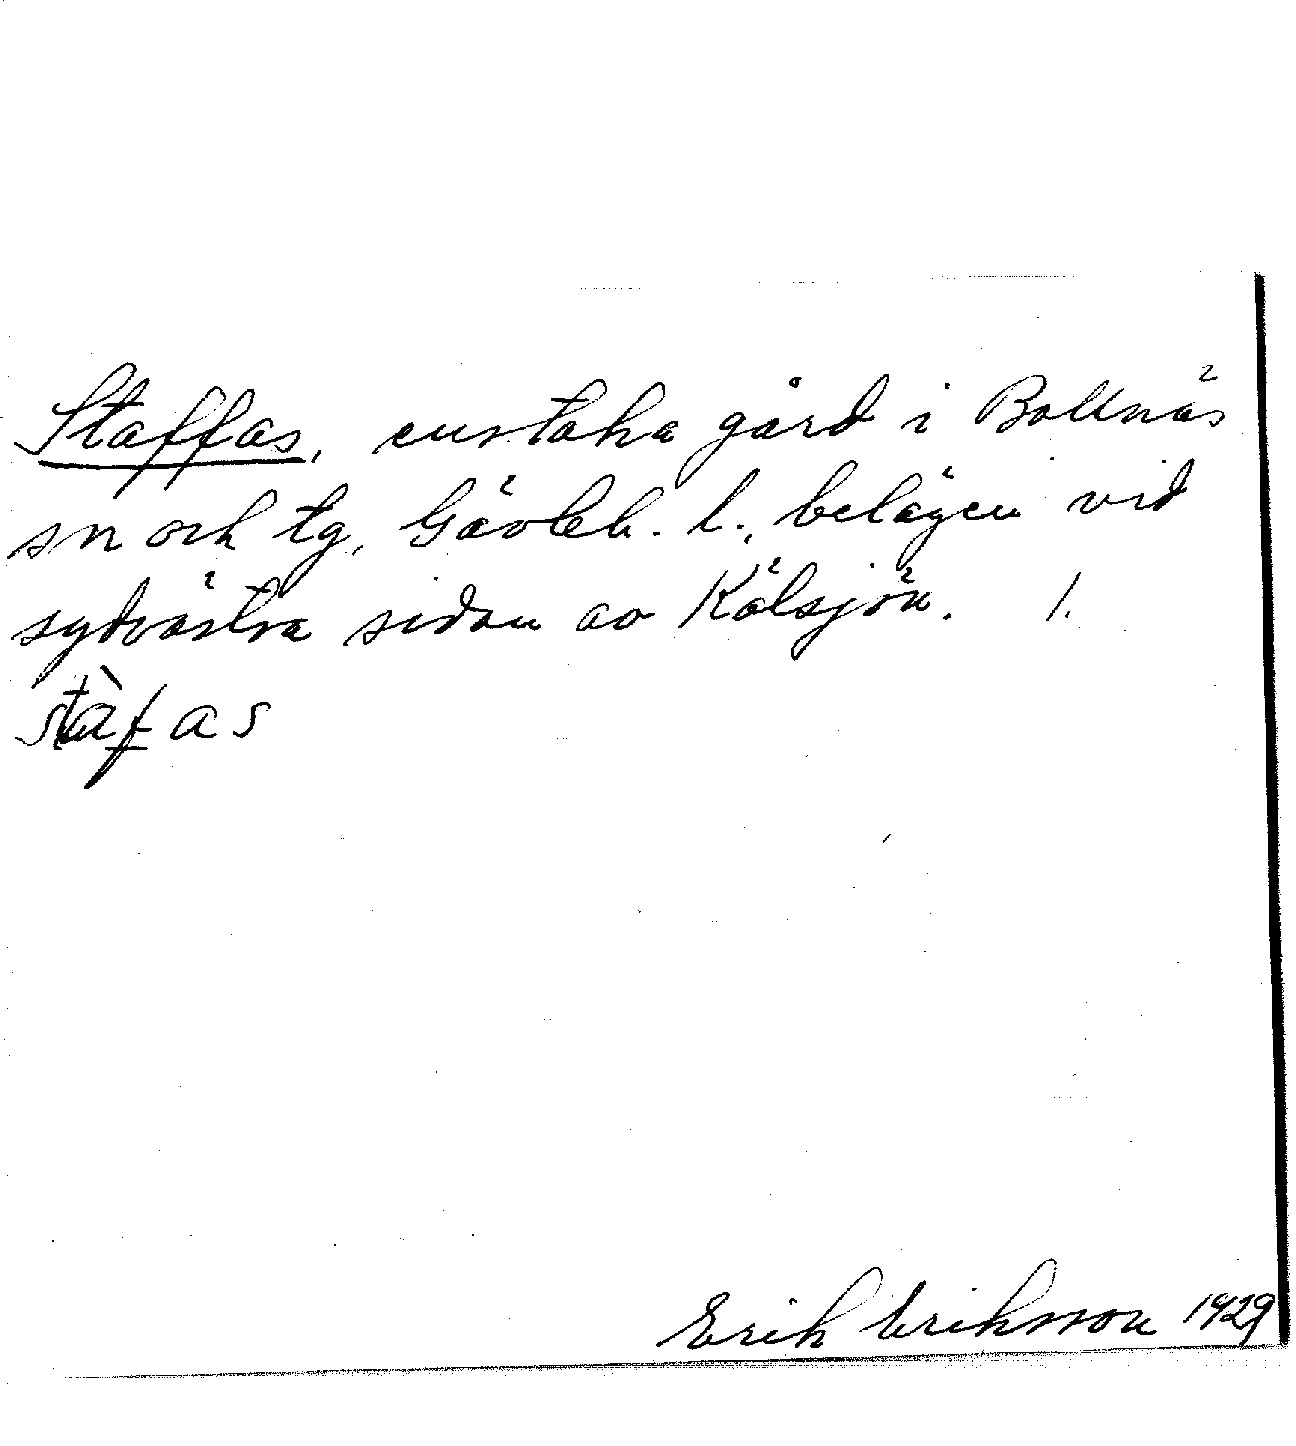 Staffas, enstaka gård i Bollnäs
sn och tg, Gävleb. l., belägen vid
sydvästra sidan av Kälsjön. 1.
stàf̲as
Erik Eriksson 1929